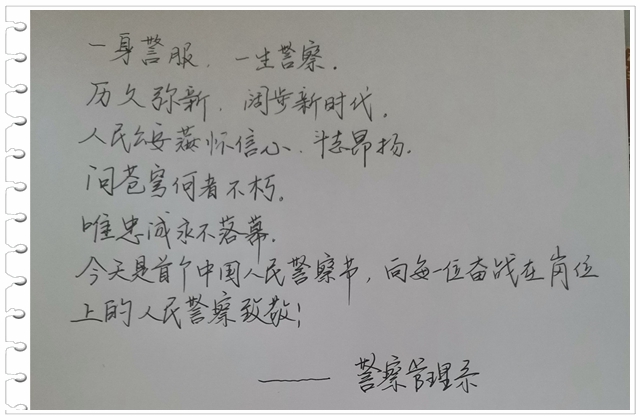 一身警服，一生警察．
历久弥新，阔步新时代。
人民公安满怀信心．斗志昂扬．
问苍穹何者不朽。
唯忠诚永不落幕．
今天是首个中国人民警察节，向每一位奋战在岗位
上的人民警察致敬！
—— 警察管理系